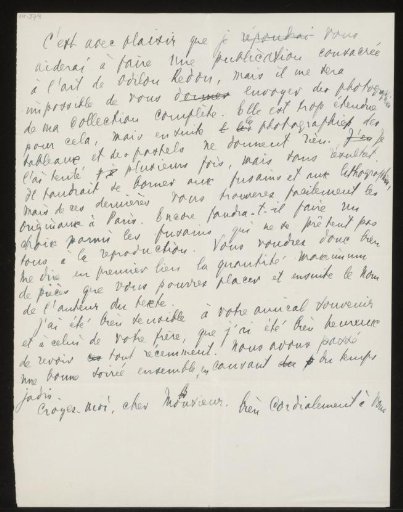 C'est avec plaisir que je répondrai vous
aiderai à faire une publication consacrée
à l'art de Odilon Redon, mais il me sera
impossible de vous donner envoyer des photographies
de ma collection complète. Elle est trop étendue
pour cela, mais ensuite les photographies des
tableaux et des pastels ne donnent rien. J'en je
l'ai tenté plusieurs fois, mais sans résultat.
Il faudrait se borner aux fusains et aux lithographies
mais de ces dernières vous trouverez facilement les
originaux à Paris. Encore faudra-t-il faire un
choix parmi les fusains qui ne se prêtent pas
tous à la reproduction. Vous voudrez donc bien
me dire en premier lieu la quantité maximum
de pièces que vous pouvez placer et ensuite le nom
de l'auteur du texte.
J'ai été bien sensible à votre amical souvenir
et à celui de votre frère, que j'ai été bien heureux
de revoir tout récemment. Nous avons passé
une bonne soirée ensemble, en causant du temps
jadis.
Croyez-moi, cher Monsieur, bien cordialement à vous